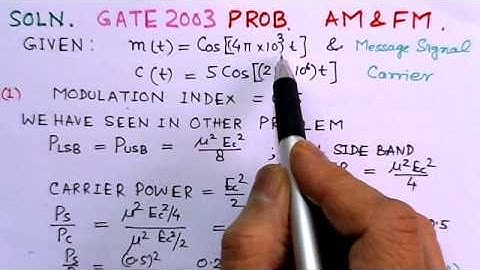 SOLN. GATE 2003 PROB. AM & FM.
GIVEN: m(t) = Cos[(4π×10³)t] & Message Signal
C(t) = 5Cos[(2 10⁶)t] Carrier
(1) MODULATION INDEX = 5
WE HAVE SEEN IN OTHER PROBLEM
P_LSB = P_USB = μ²Ec²/8 ; SIDE BAND = μ²Ec²/4
CARRIER POWER = Ec²/2
Ps/Pc = (μ²Ec²/4)/(μ²Ec²/2) = 0.5
Ps/ = (0.5)² 0.2